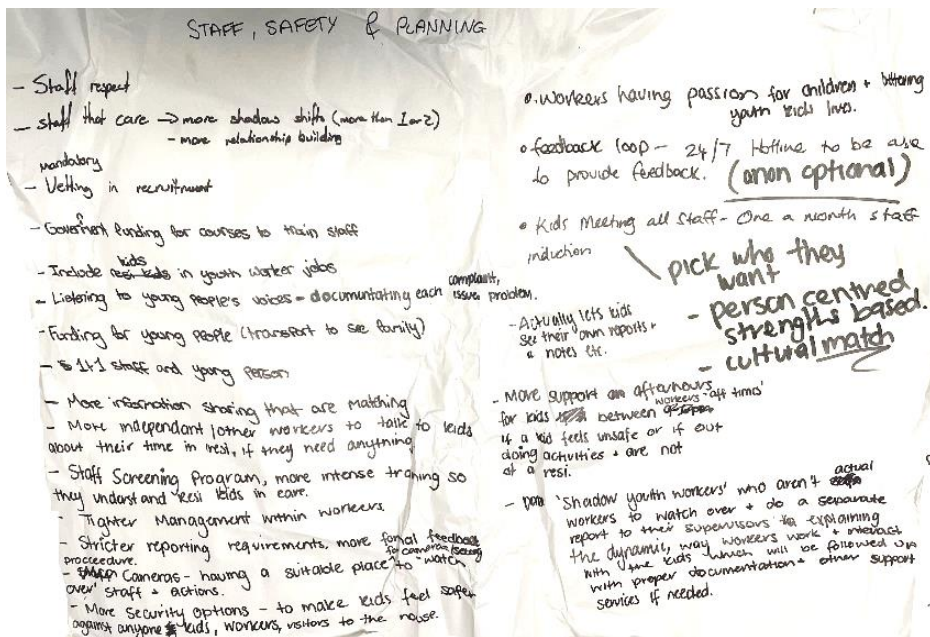 STAFF, SAFETY & PLANNING
- Staff respect
- staff that care → more shadow shifts (more than 1 or 2)
- more relationship building
mandatory
- Vetting in recruitment
- Goverment funding for courses to train staff
kids
- Include resi kids in youth worker jobs
complaint,
- Listening to young people's voices - documentating each issue, problem.
- Funding for young people (transport to see family)
- 1+1 staff and young person
- More information sharing that are matching
- More independant / other workers to talk to kids
about their time in resi, if they need anything
- Staff Screening Program, more intense training so
they understand resi kids in care.
- Tighter Management within workers
- Stricter reporting requirements, more formal feedback
proceedure.
- Cameras - having a suitable place to "watch
over" staff + actions.
- More Security options - to make kids feel safer
against anyone kids, workers, visitors to the house.
• Workers having passion for children + bittering
youth kids lives.
• feedback loop - 24/7 Hotline to be able
to provide feedback. (anon optional)
• Kids Meeting all Staff - One a month staff
induction
pick who they
want
- person centred
strengths based.
- cultural match
- Actually lets kids
see their own reports +
notes etc.
- More support on afterhours
workers 'off times'
for kids between
if a kid feels unsafe or if out
doing activities + are not
at a resi.
actual
- 'Shadow youth workers' who aren't
workers to watch over + do a separate
report to their supervisors explaining
the dynamic, way workers work + interact
with the kids which will be followed up
with proper documentation + other support
services if needed.